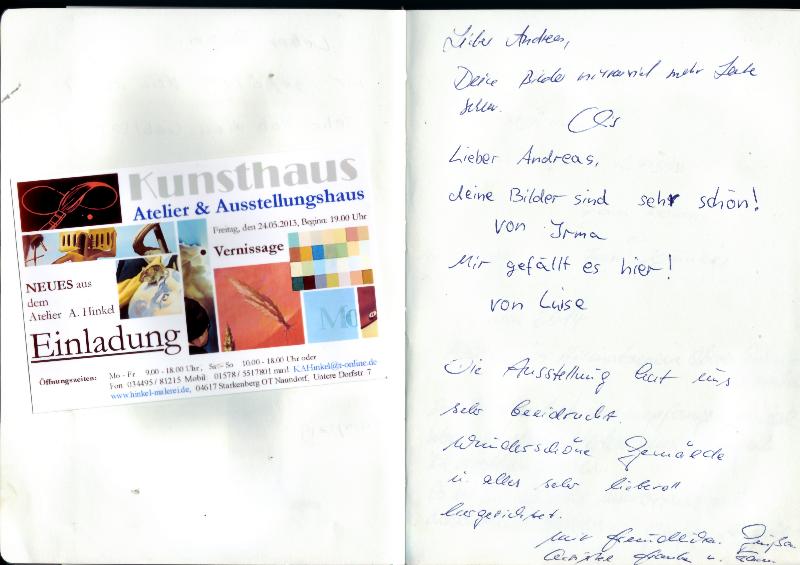 Kunsthaus
Atelier & Ausstellungshaus
Freitag, den 24.05.2013, Beginn: 19.00 Uhr
Vernissage
NEUES aus
dem
Atelier A. Hinkel
Einladung
Öffnungszeiten:
Mo - Fr 9.00 - 18.00 Uhr, Sa - So 10.00 - 18.00 Uhr oder
Fon 034495 / 81215 Mobil 01578 / 5517801 mail KAHinkel@t-online.de
www.hinkel-malerei.de, 04617 Starkenberg OT Naundorf, Untere Dorfstr 7
Lieber Andreas,
Deine Bilder müssen viel mehr Leute
sehen.
Lieber Andreas,
deine Bilder sind sehr schön!
von Irma
Mir gefällt es hier!
von Luise
Die Ausstellung hat uns
sehr beeidruckt.
Wunderschöne Gemälde
u. alles sehr liebevoll
hergerichtet.
Mit freundlichen Grüßen